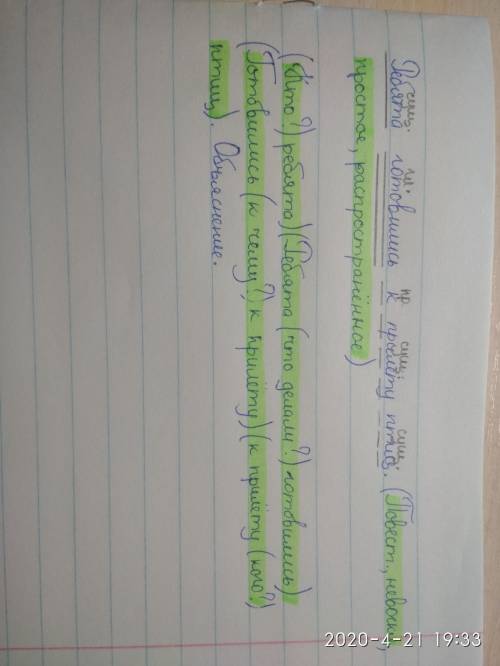 сущ. гл. пр сущ. сущ.
Ребята готовились к прилёту птиц. (Повест., невоскл.,
простое, распространённое)
(Кто?) ребята) (Ребята (что делали?) готовились)
(Готовились (к чему?) к прилёту) (к прилёту (кого?)
птиц). Объяснение.
2020-4-21 19:33